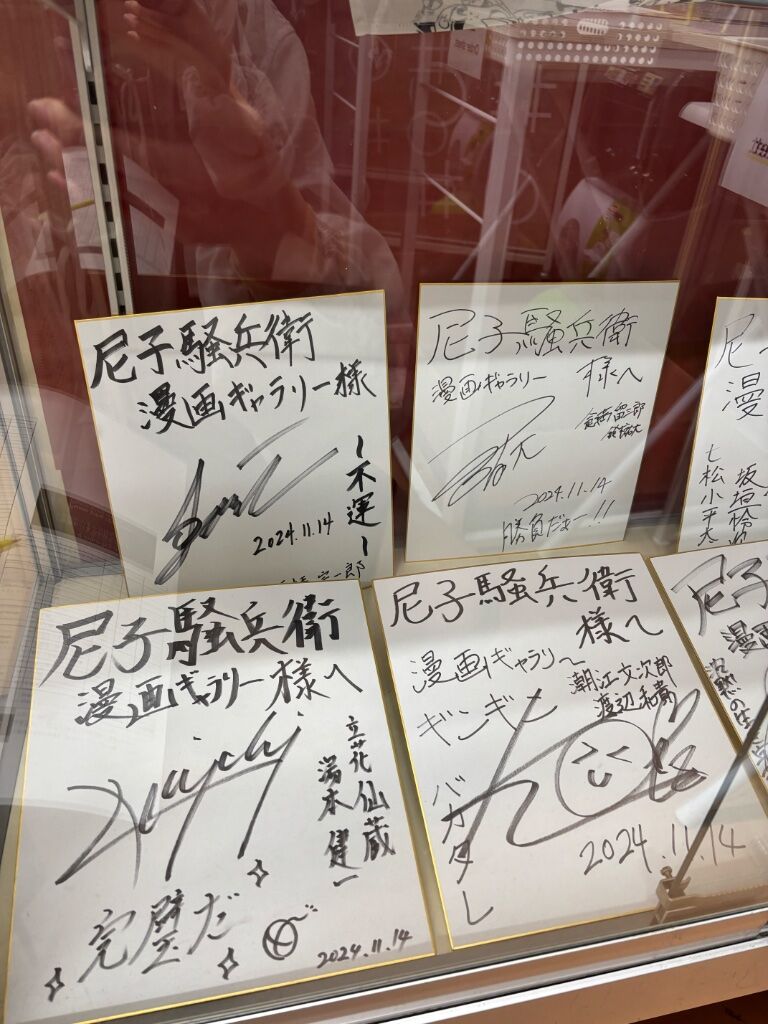 尼子騒兵衛
漫画ギャラリー様
〜不運〜
2024.11.14
尼子騒兵衛
漫画ギャラリー
様へ
食満留三郎
2024.11.14
勝負だぁー!!
漫
七松小平太
尼子騒兵衛
漫画ギャラリー様へ
立花仙蔵
湯本健一
完璧だ
2024.11.14
尼子騒兵衛
様へ
漫画ギャラリー
潮江文次郎
渡辺和貴
ギンギン
バカタレ
2024.11.14